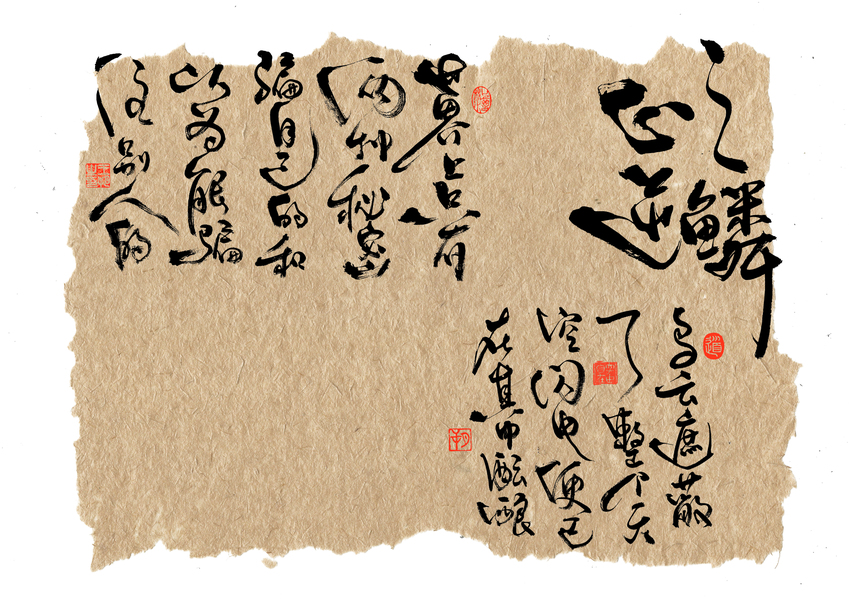 之鳞
逆
乌云遮蔽
了整个天
空闪电便已
在其中酝酿
世界上只有
两种秘密
骗自己的和
以为能骗
住别人的